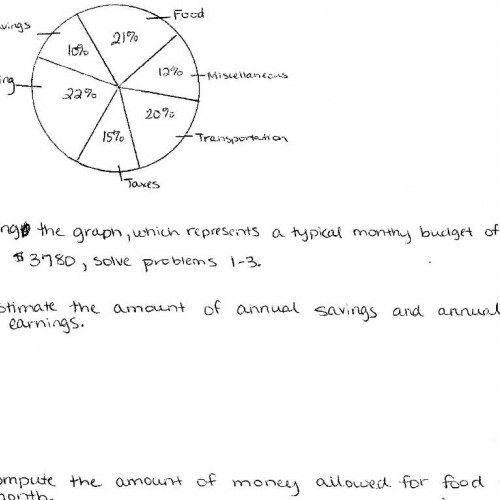 Food
21%
10%
12%
Miscellaneous
22%
20%
15%
Transportation
Taxes
the graph, which represents a typical monthy budget of
$3780, solve problems 1-3.
the amount of annual savings and annual
earnings.
the amount of money allowed for food